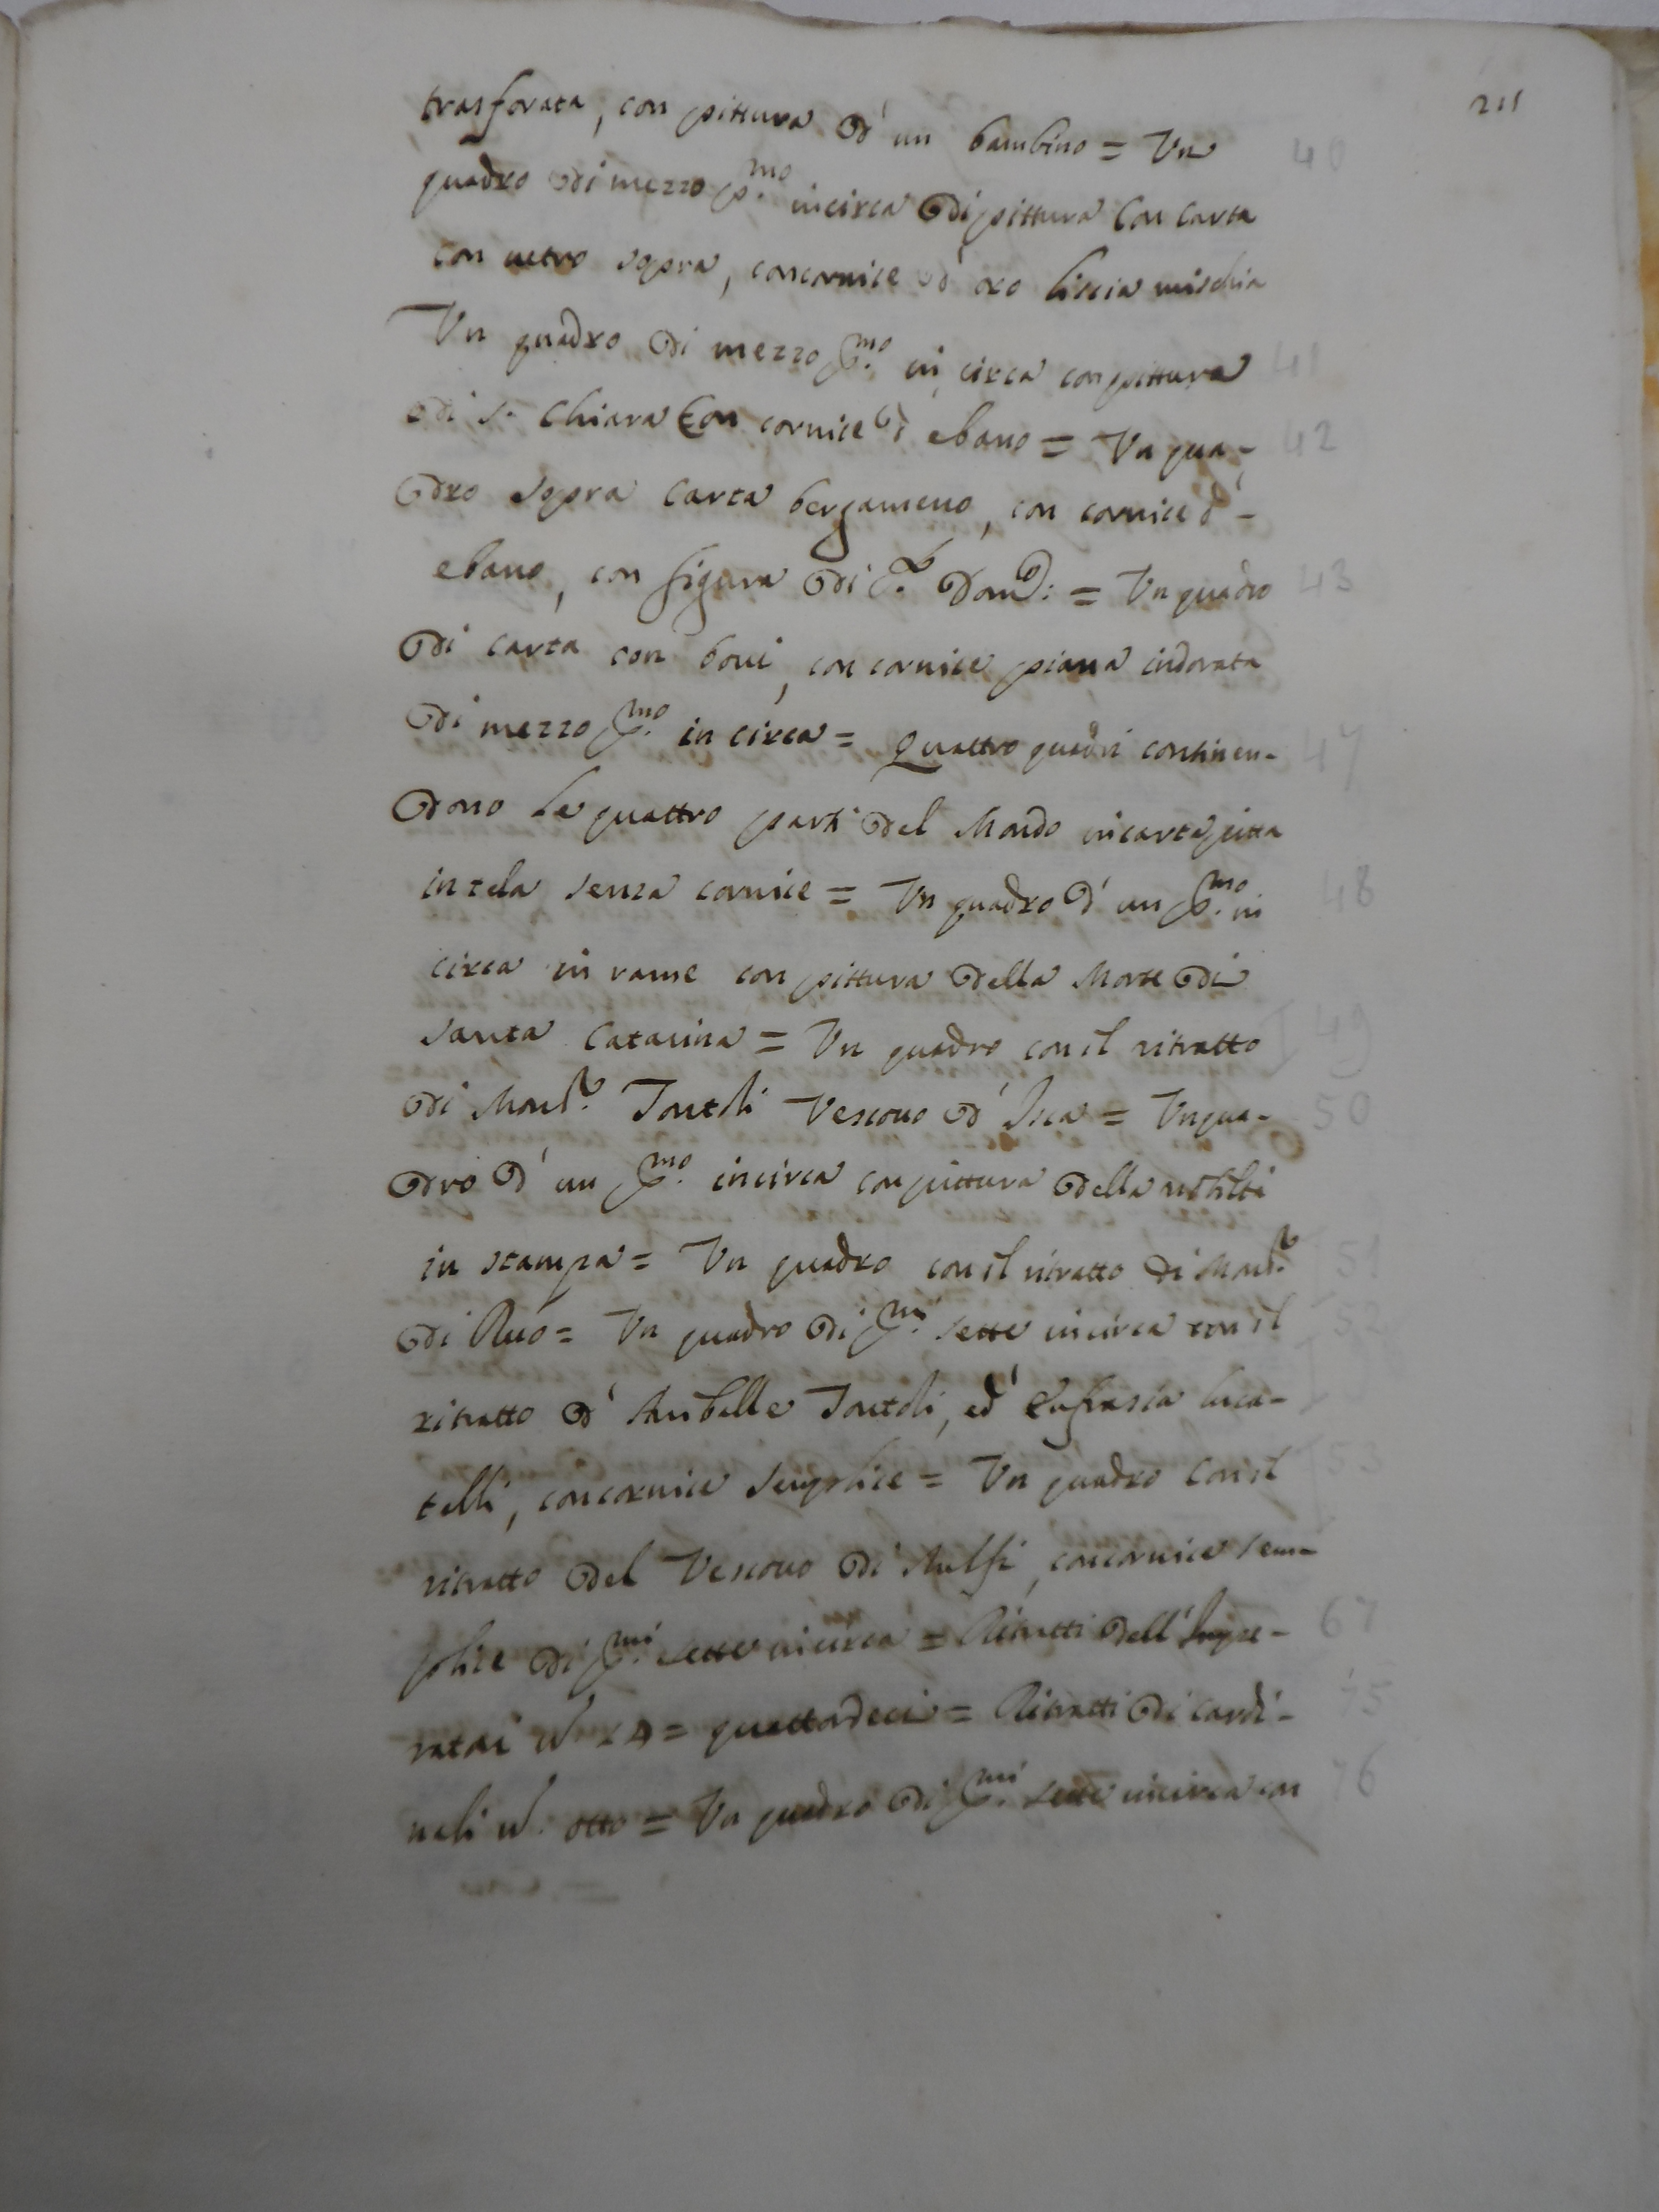 211
trasforata, con pittura d'un bambino = Un 40
quadro di mezzo p.mo incirca di pittura con carta
con uetro sopra, concornice d'oro liscia mischia
Un quadro di mezzo p.mo in circa con pittura 41
di S. Chiara con cornice d'ebano = Un qua- 42
dro sopra carta bergameno, con cornice d'-
ebano, con figura di = Un quadro 43
di carta con boui, con cornice piana indorata
di mezzo p.mo in circa = Quattro quadri continen- 47
dono le quattro parti del Mondo in carta pitta
in tela senza cornice = Un quadro d'un p.mo in 48
circa in rame con pittura della Morte di
Santa Catarina = Un quadro con il ritratto 49
di Mons.r Tontoli Vescouo d' = Un qua- 50
dro d'un p.mo incirca con pittura della
in stampa = Un quadro con il ritratto di Mons.r 51
di Ruo = Un quadro di p.mi sette incirca con il 52
ritratto d' Tontoli, ed Eufrasia luca-
telli, concornice semplice = Un quadro con il 53
ritratto del Vescouo di, concornice sem-
plice di p.mi sette incirca = Ritratti dell'Impe- 67
ratori n.º 14 = quattordeci = Ritratti di Cardi- 75
nali n.º otto = Un quadro di p.mi sette incirca con 76